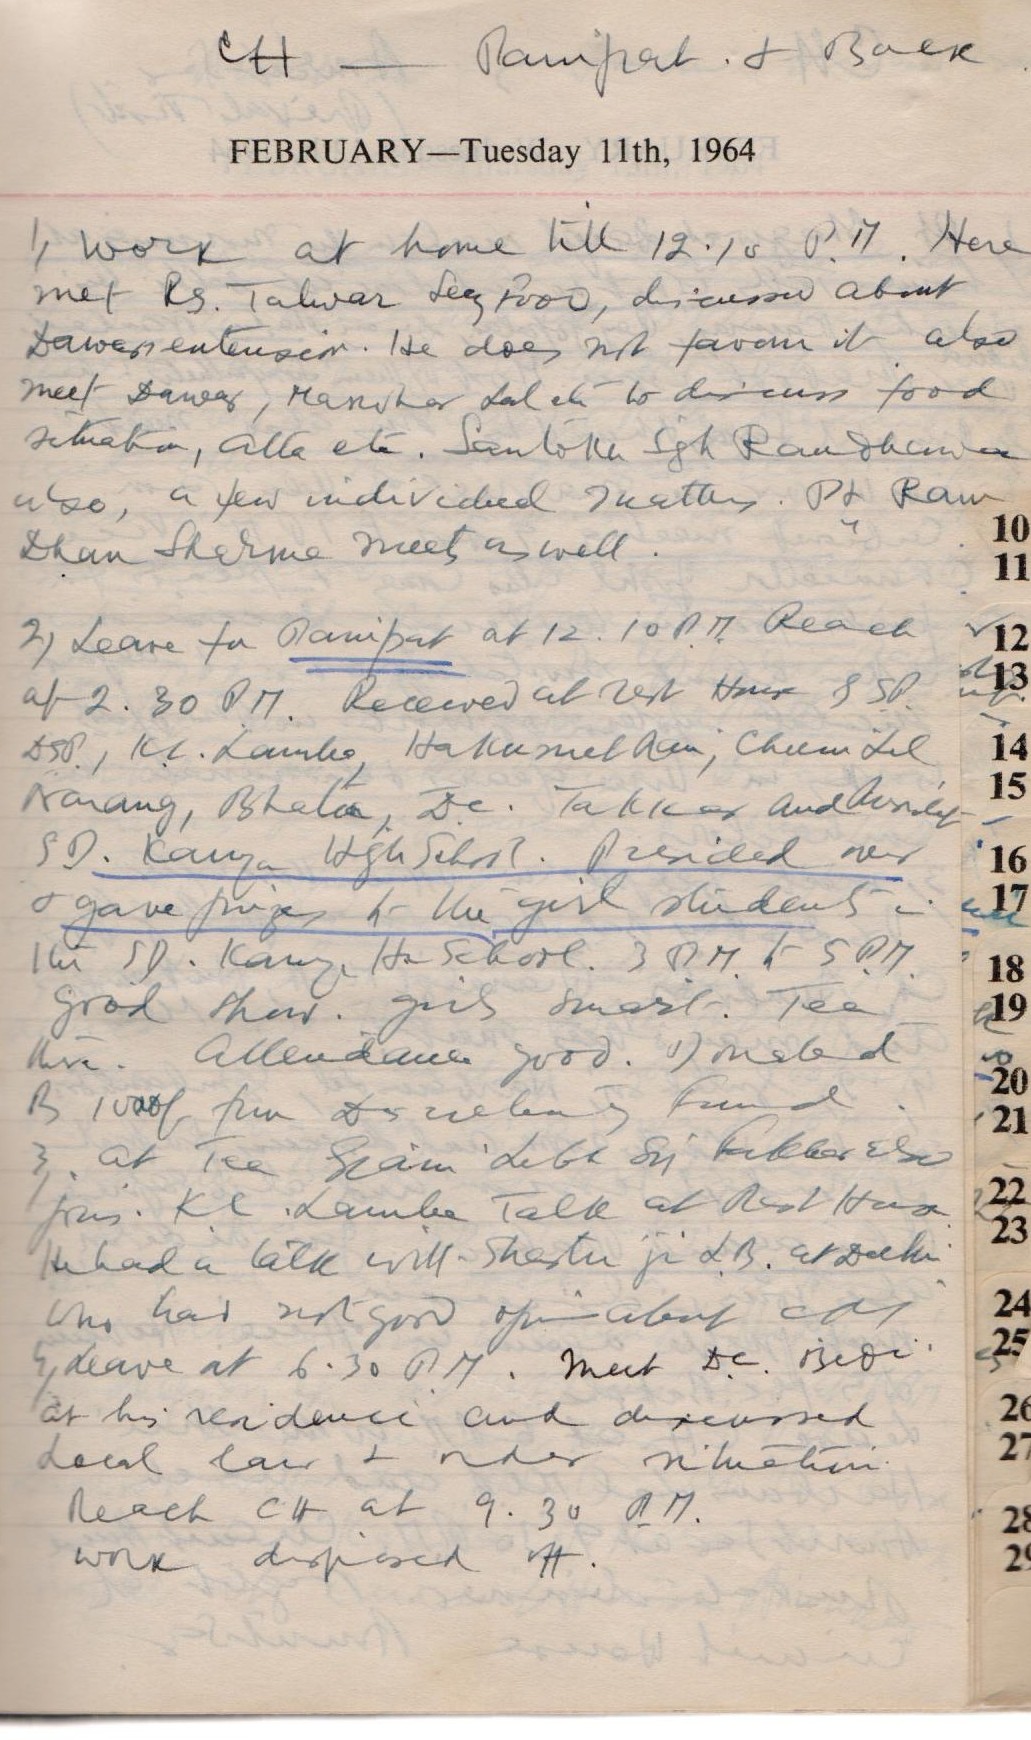 CH — Panipat. & Back
FEBRUARY—Tuesday 11th, 1964
1) Work at home till 12.10 P.M. Here
met RS. Talwar Secy Food, discussed about
Dawar extension. He does not favour it also
meet Dawar, Manohar Lal etc to discuss food
situation, atta etc. Santokh Sgh Randhawa
also, a few individual matters. Pt Ram
Dhan Sharma meets as well.
2) Leave for Panipat at 12.10 P.M. Reach
at 2.30 P.M. Received at rest House SP.
DSP., K.L. Lamba, Hakumat Rai, Chuni Lal
Narang, Bhatia, Dc. Takkar and
SD. Kanya High School. Presided over
& gave prizes to the girl students in
the SD. Kanya H. School. 3 P.M. to 5 P.M.
Good show. girls smart. Tea
there. Attendance good. Donated
Rs from Discretionary Fund.
3, at Tea Giani Labh Sgh Takkar also
joins. K.L. Lamba Talk at Rest House
He had a talk with Shastri ji L.B. at Delhi
who had not good opinion about
4) Leave at 6.30 P.M. Meet Dc. Bedi.
at his residence and discussed
Local law & order situation.
Reach CH at 9.30 P.M.
work disposed off.
10
11
12
13
14
15
16
17
18
19
20
21
22
23
24
25
26
27
28
29